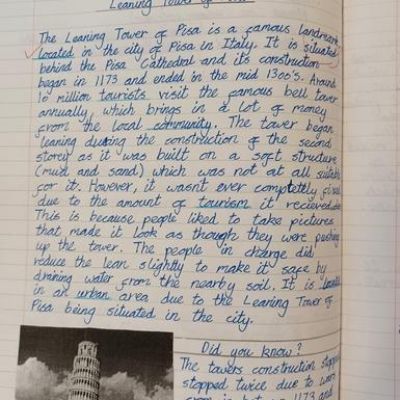 Leaning Tower of
The Leaning Tower of Pisa is a famous landmark
located in the city of Pisa in Italy. It is situated
behind the Pisa Cathedral and its construction
began in 1173 and ended in the mid 1300's. Around
10 million tourists visit the famous bell tower
annually, which brings in a lot of money
from the local community. The tower began
leaning during the construction of the second
storey as it was built on a soft structure
(mud and sand) which was not at all suitable
for it. However, it wasn't ever completely fixed
due to the amount of tourism it recieved.
This is because people liked to take pictures
that made it look as though they were pushing
up the tower. The people in charge did
reduce the lean slightly to make it safe by
draining water from the nearby soil. It is located
in an urban area due to the Leaning Tower of
Pisa being situated in the city.
Did you know?
The towers construction stopped
stopped twice due to wars
from in between 1173 and